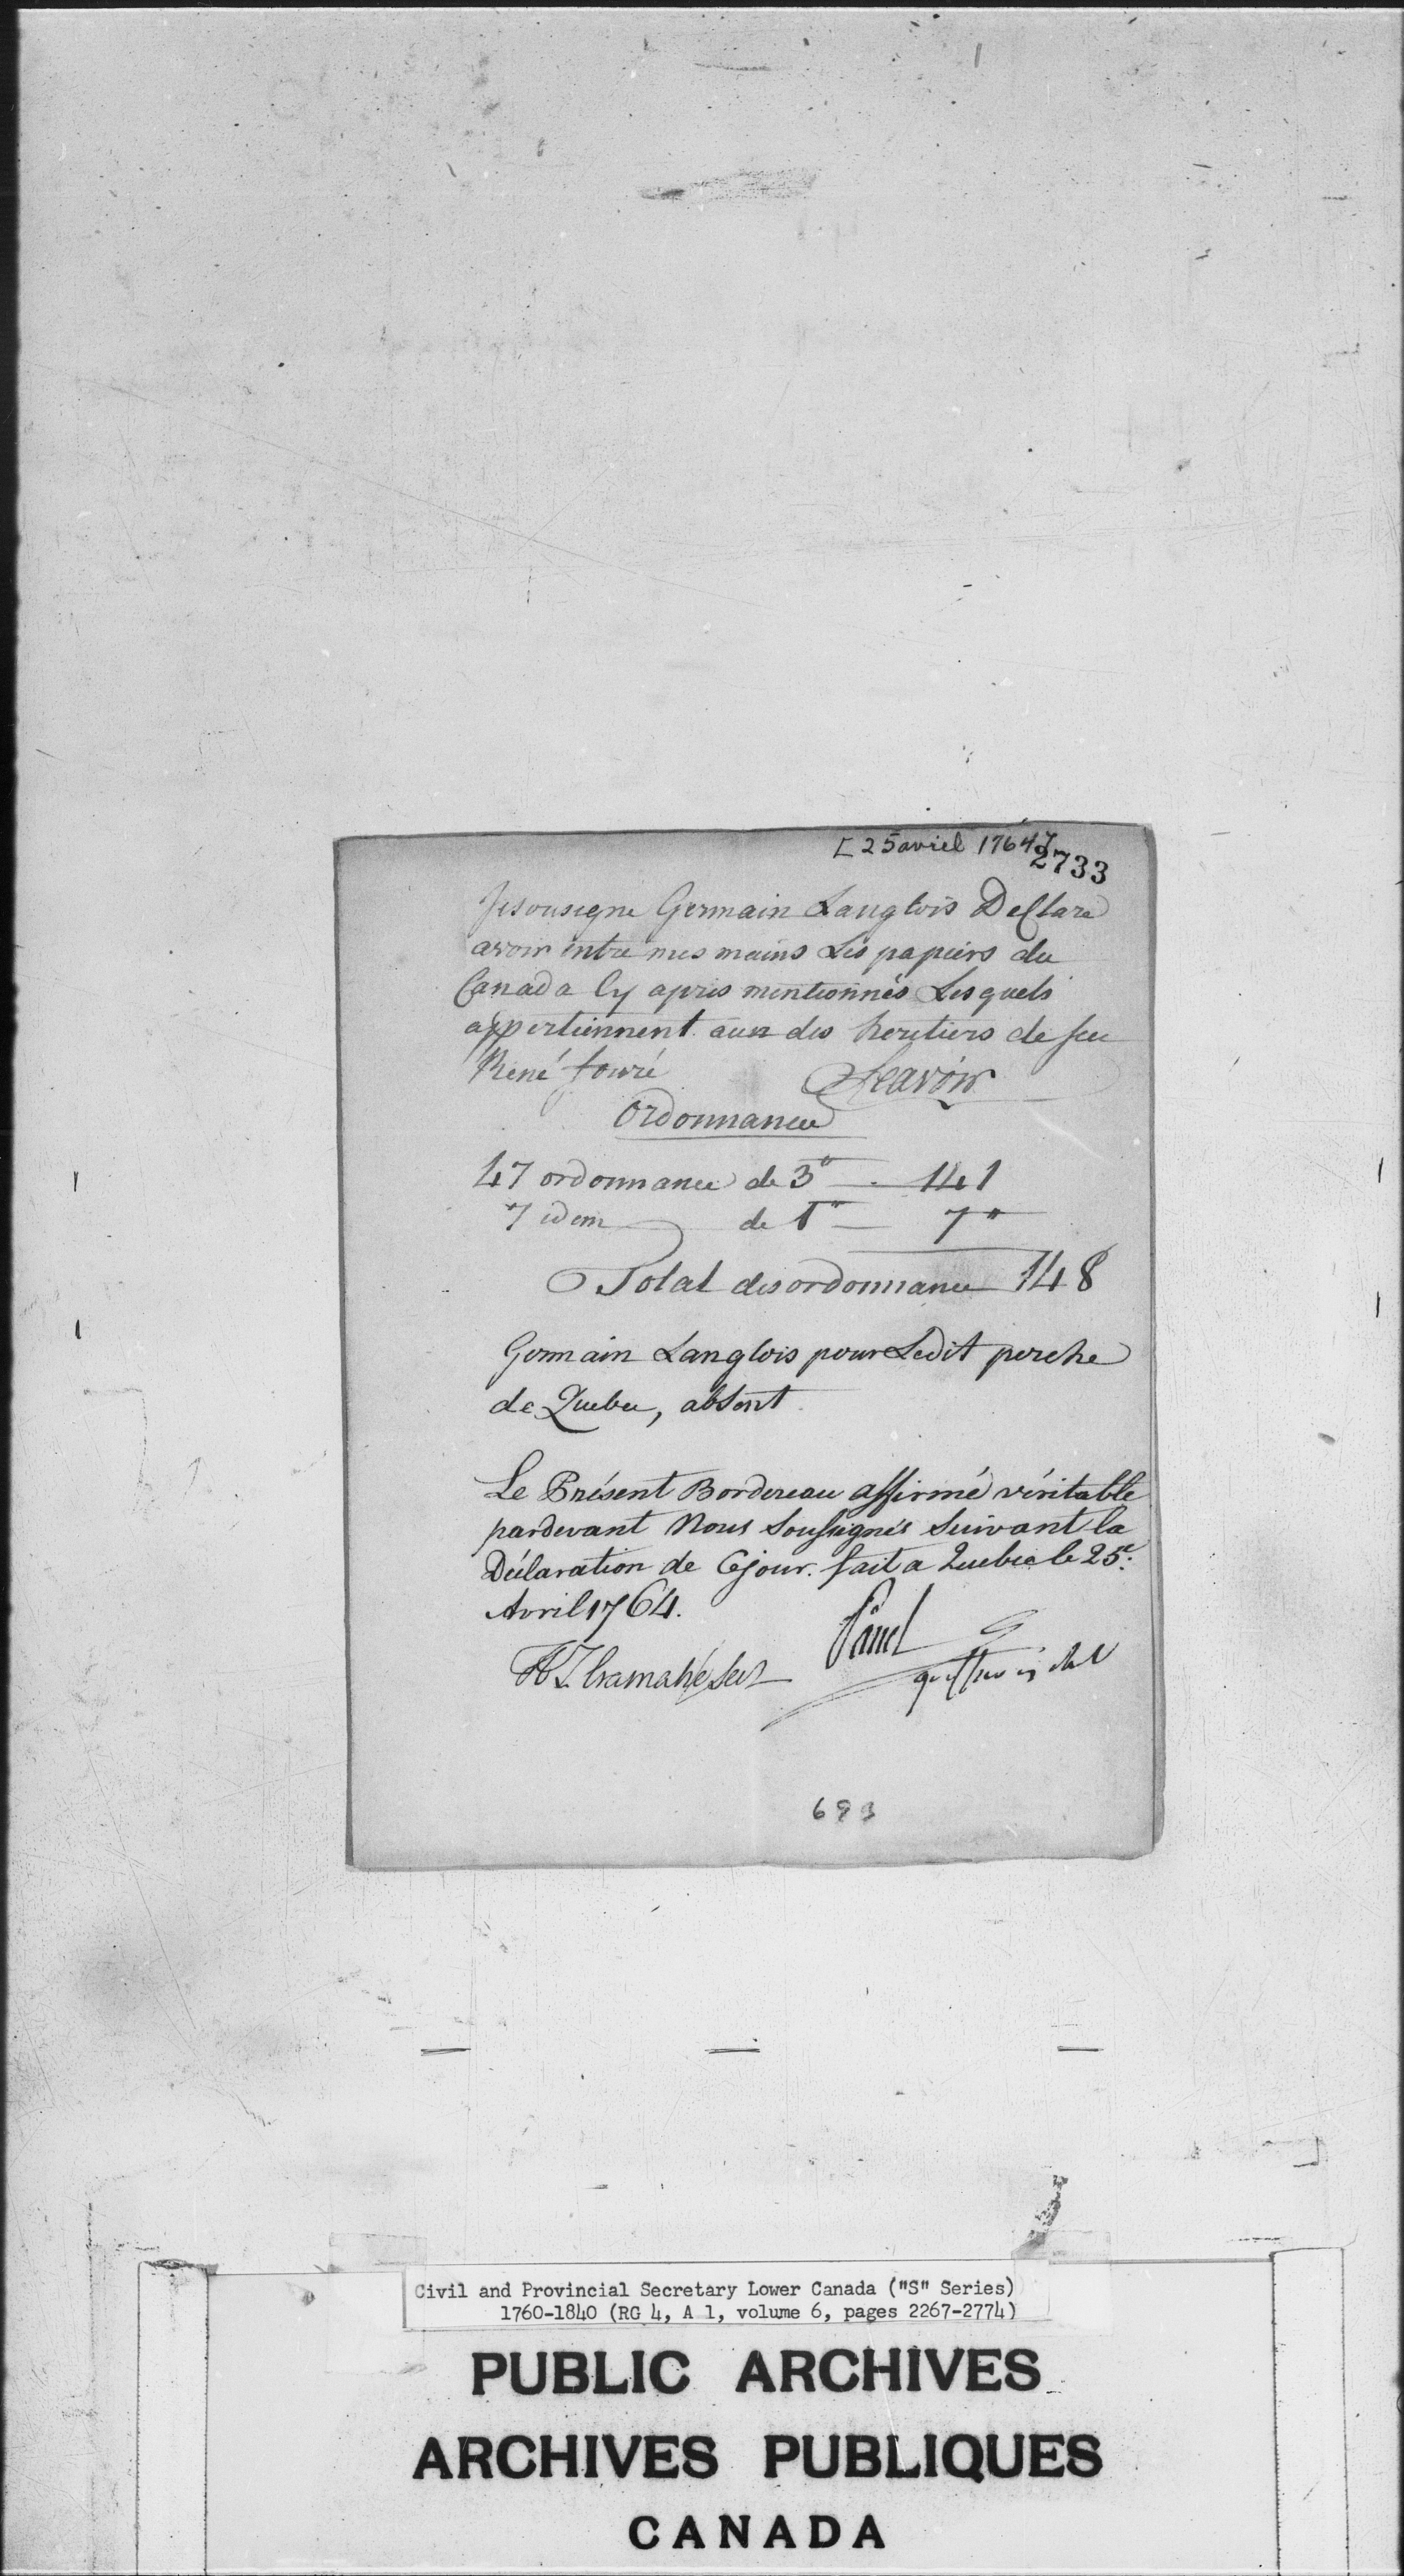 [25 avril 1764]
2733
Jesousigne Germain Langlois Declare
avoir entre mes mains Les papiers du
Canada Cy apres mentionnés Lesquels
appertiennent aux des heritiers de feu
René fouré Sçavoir
Ordonnance
47 ordonnance de 3" — 141
7 idem de 1" — 7"
Total des ordonnance 148
Germain Langlois pour Ledit perche
de Quebec, absent
Le Présent Bordereau affirmé véritable
pardevant Nous Soussignés Suivant la
Déclaration de Cejour. fait a Quebec le 25e.
Avril 1764.
Panet
HT Cramahé Secr
693
Civil and Provincial Secretary Lower Canada ("S" Series)
1760-1840 (RG 4, A 1, volume 6, pages 2267-2774)
PUBLIC ARCHIVES
ARCHIVES PUBLIQUES
CANADA